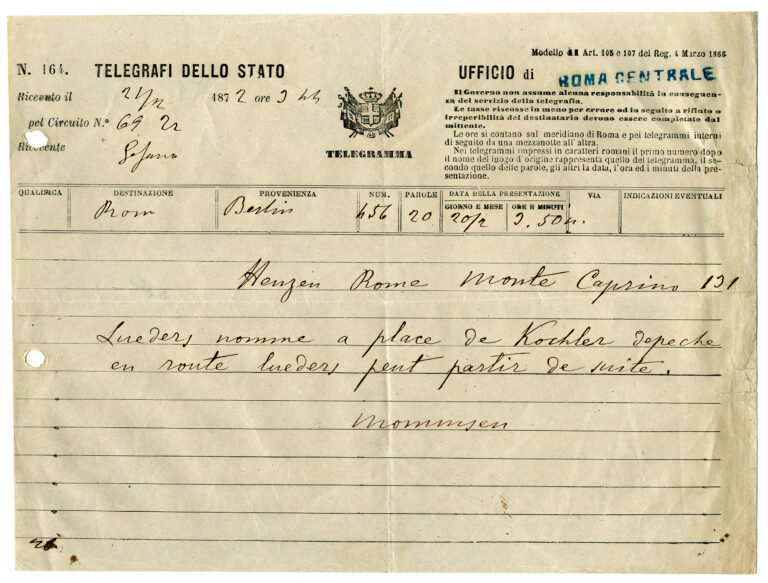 Modello 41 Art. 105 e 107 del Reg. 4 Marzo 1865
N. 164. TELEGRAFI DELLO STATO
UFFICIO di ROMA CENTRALE
Ricevuto il 21/2 1872 ore 3 44
pel Circuito N.° 69 22
Ricevente
TELEGRAMMA
Il Governo non assume alcuna responsabilità in conseguen-
za del servizio della telegrafia.
Le tasse riscosse in meno per errore od in seguito a rifiuto o
irreperibilità del destinatario devono essere completate dal
mittente.
Le ore si contano sul meridiano di Roma e pei telegrammi interni
di seguito da una mezzanotte all'altra.
Nei telegrammi impressi in caratteri romani il primo numero dopo
il nome del luogo d'origine rappresenta quello del telegramma, il se-
condo quello delle parole, gli altri la data, l'ora ed i minuti della pre-
sentazione.
QUALIFICA DESTINAZIONE PROVENIENZA NUM. PAROLE DATA DELLA PRESENTAZIONE VIA INDICAZIONI EVENTUALI
GIORNO E MESE ORE E MINUTI
Rom Berlin 456 20 20/2 3.50
Henzen Rome Monte Caprino 131
Lueders nomme a place de Kochler depeche
en route lueders peut partir de suite.
Mommsen